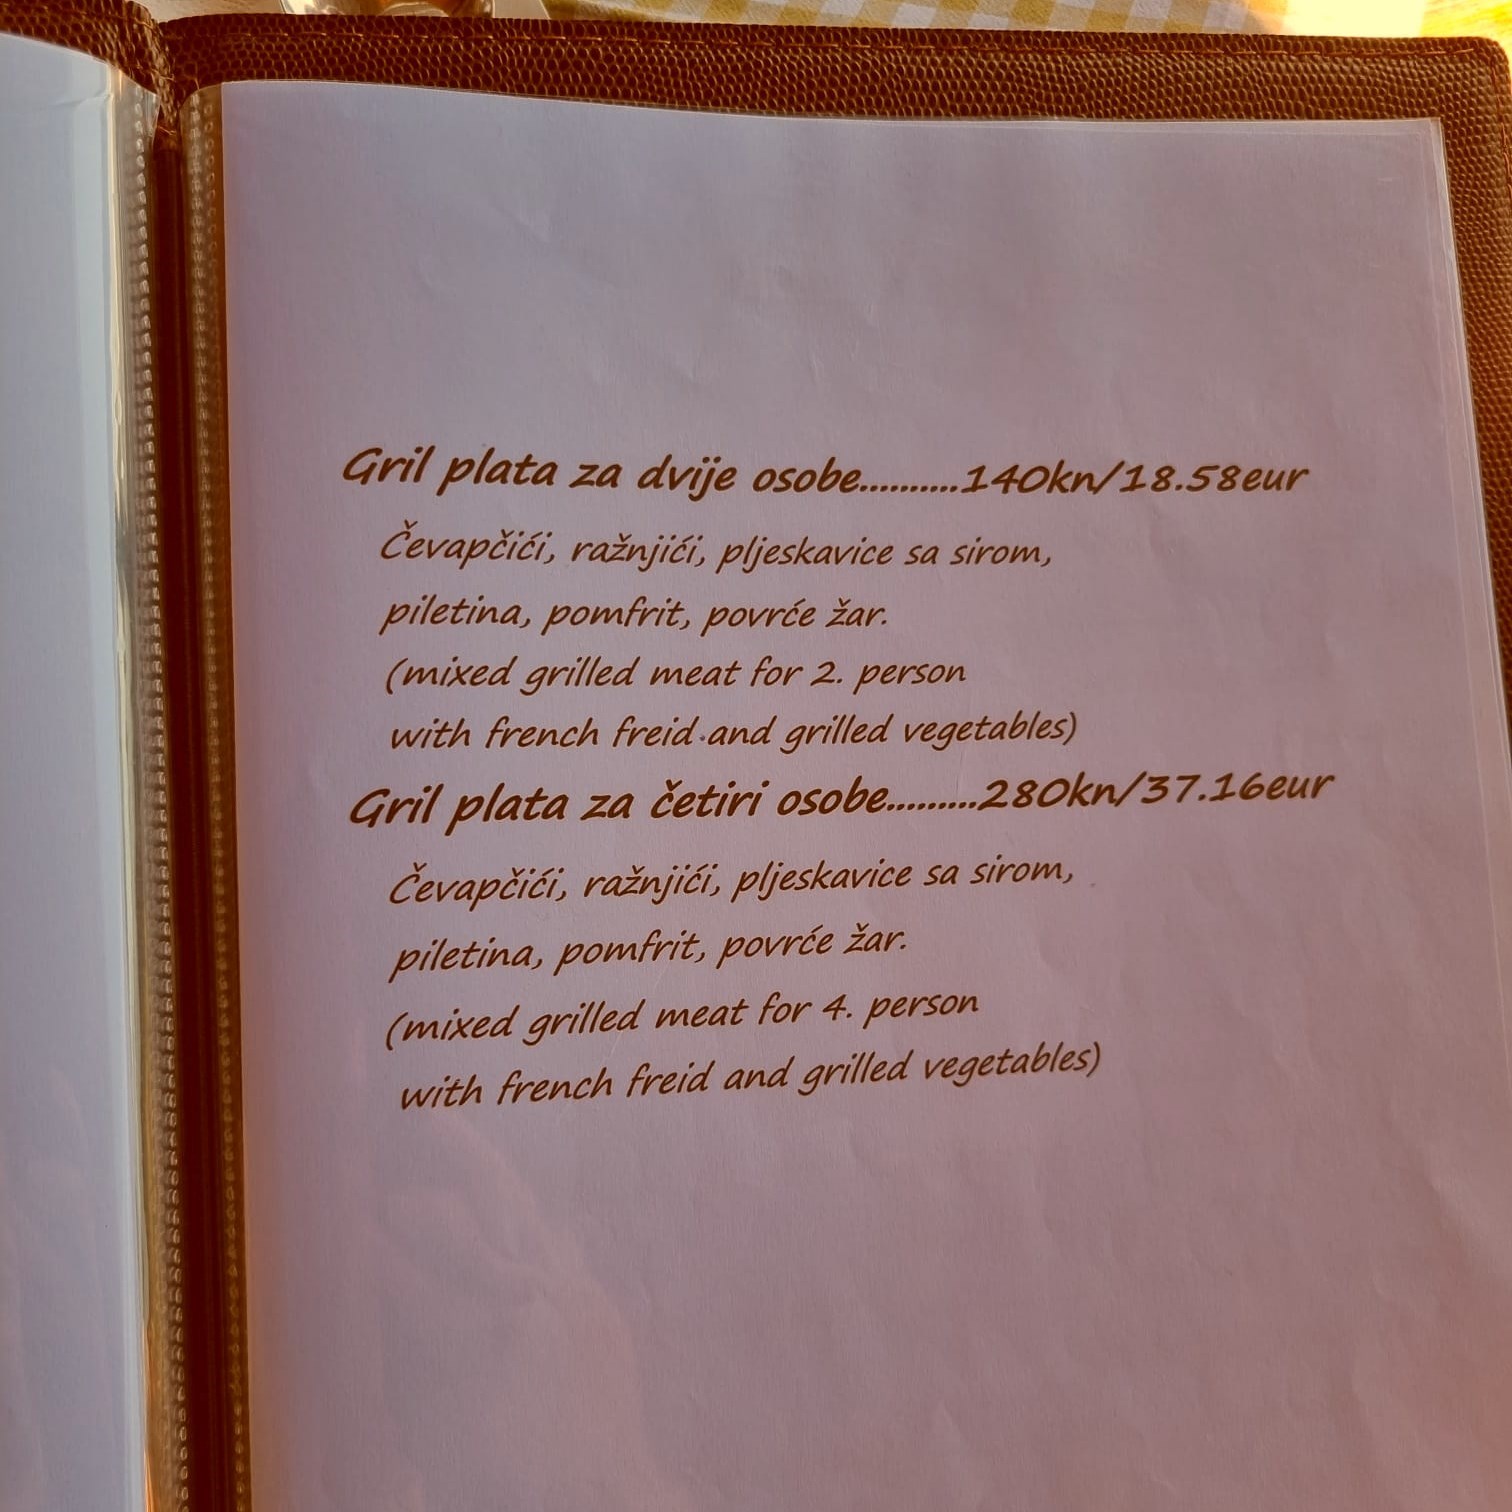 Gril plata za dvije osobe..........140kn/18.58eur
Čevapčići, ražnjići, pljeskavice sa sirom,
piletina, pomfrit, povrće žar.
(mixed grilled meat for 2. person
with french freid and grilled vegetables)
Gril plata za četiri osobe.........280kn/37.16eur
Čevapčići, ražnjići, pljeskavice sa sirom,
piletina, pomfrit, povrće žar.
(mixed grilled meat for 4. person
with french freid and grilled vegetables)